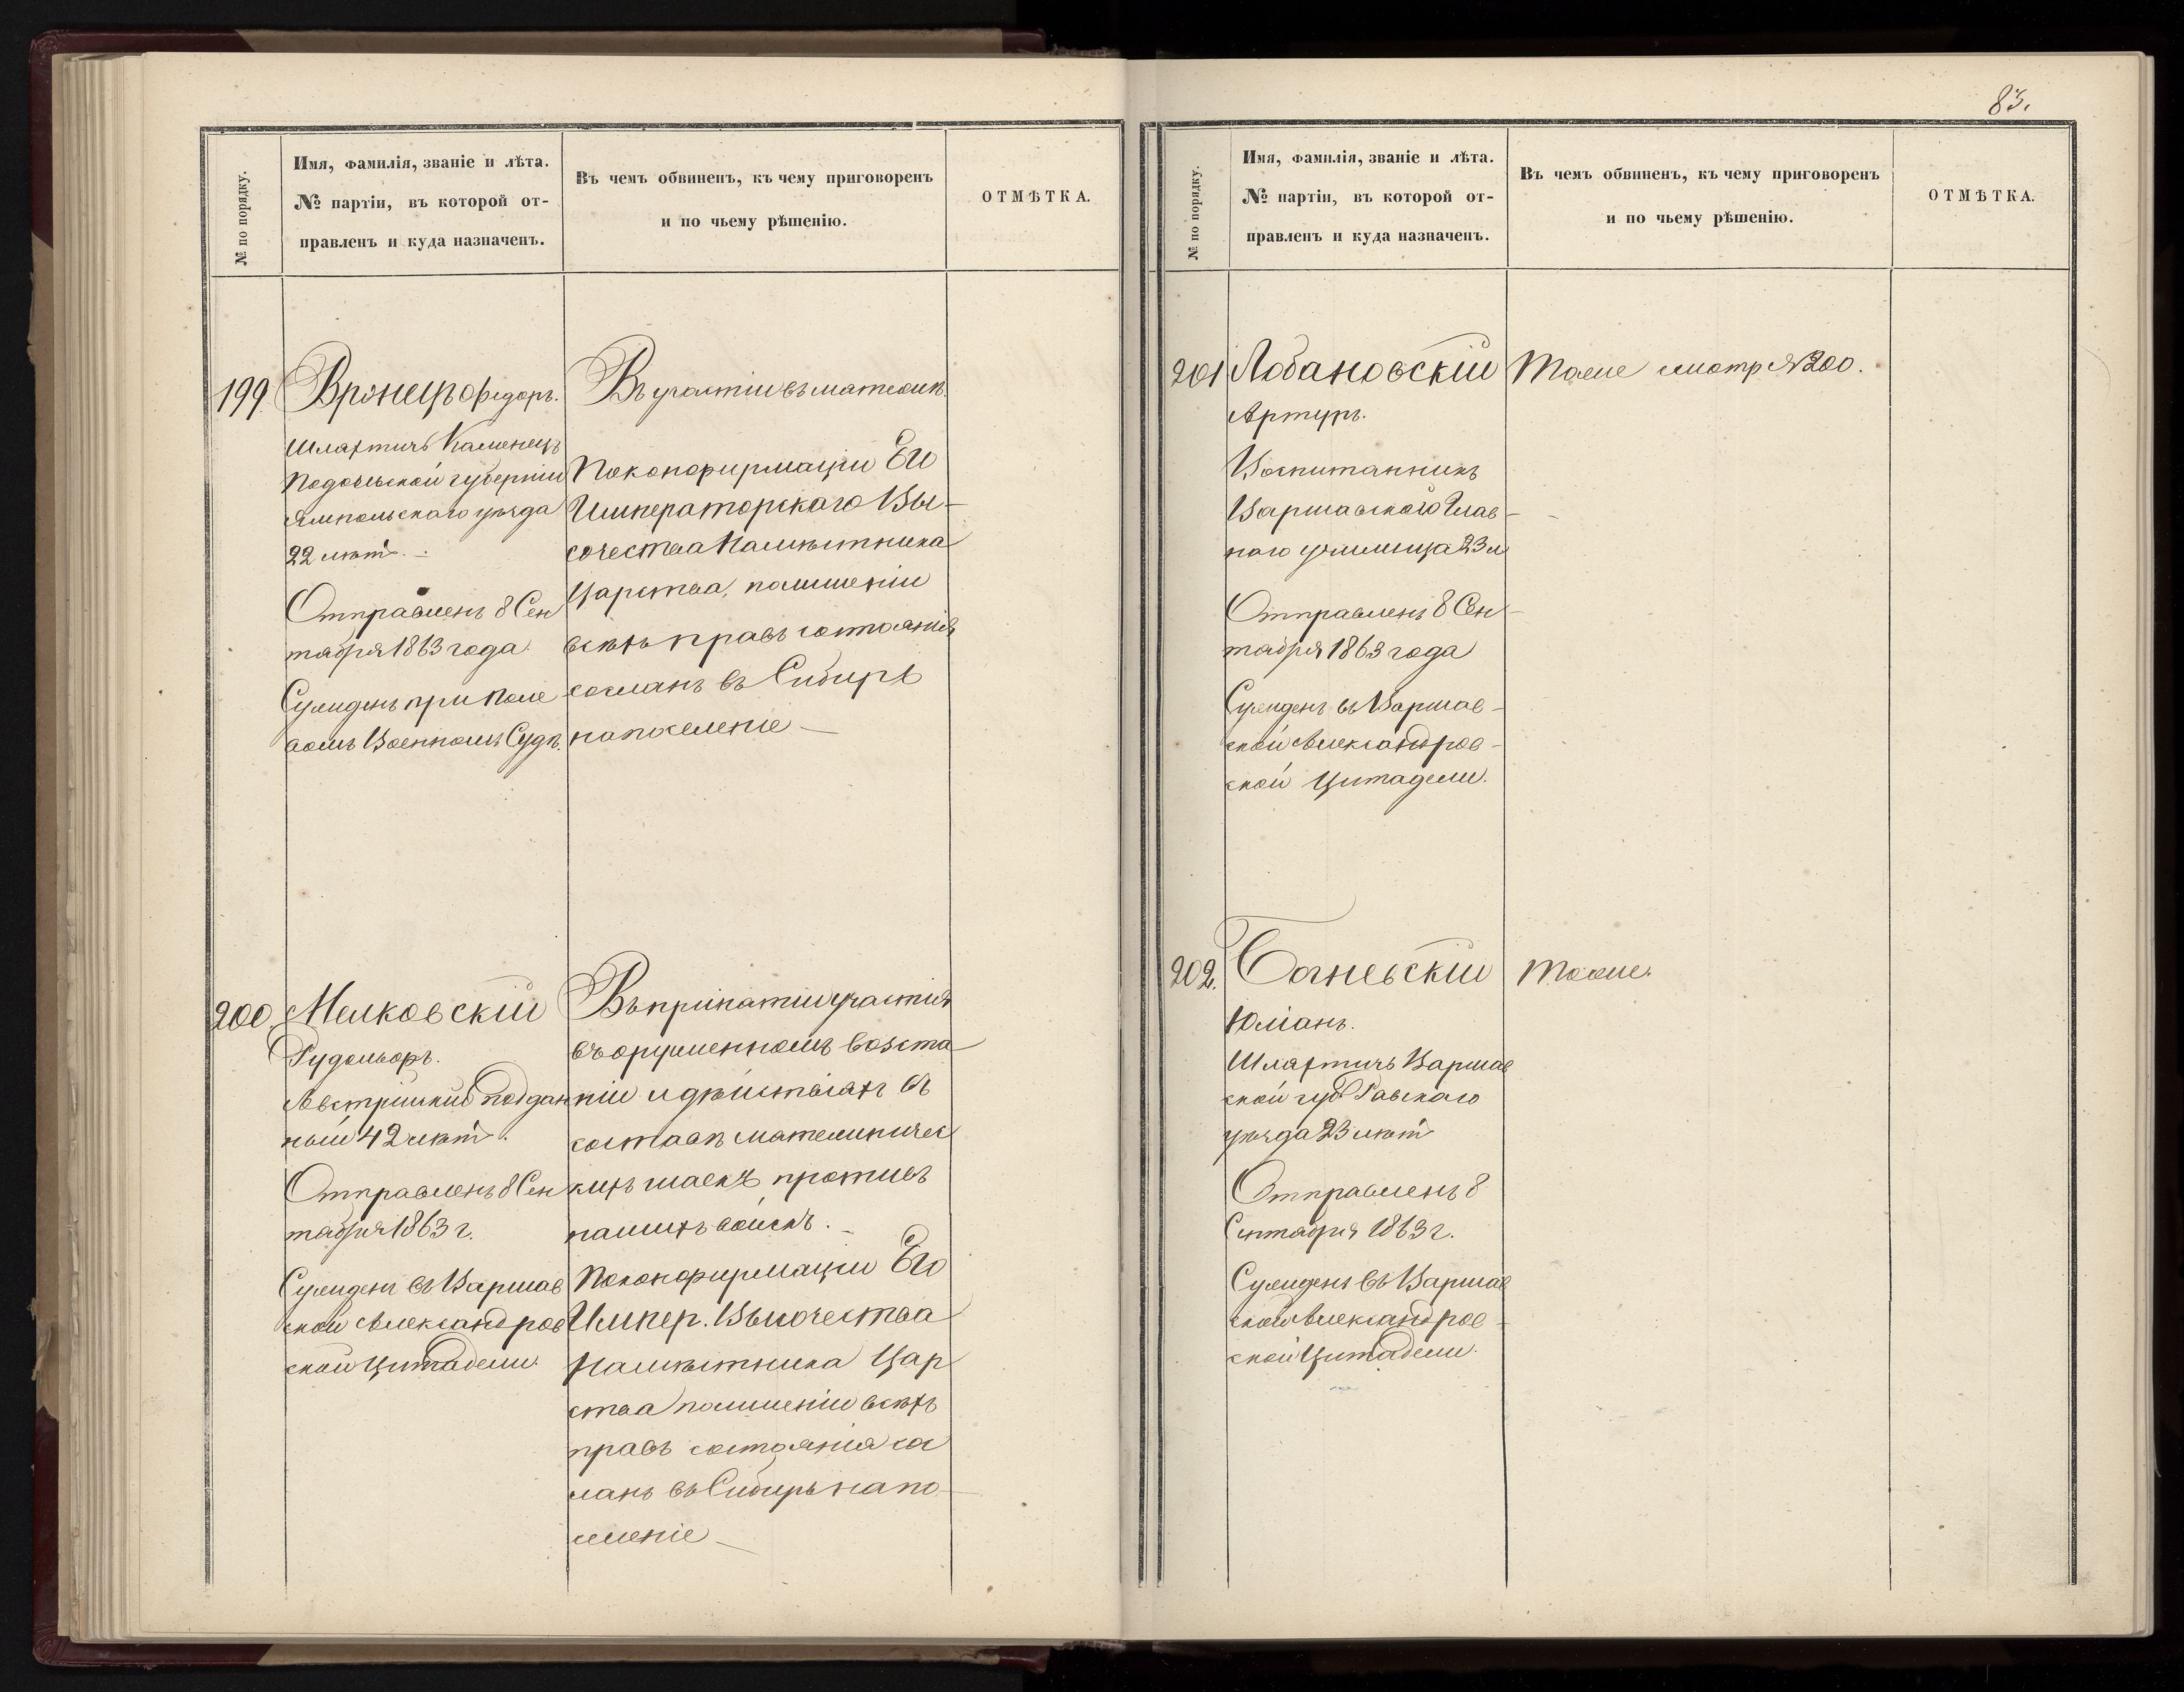 83.
№ по порядку.
Имя, фамилія, званіе и лѣта.
№ партіи, въ которой от-
правленъ и куда назначенъ.
Въ чемъ обвиненъ, къ чему приговоренъ
и по чьему рѣшенію.
ОТМѢТКА.
199
Вронецъ Ѳедоръ.
Шляхтичъ Каменецъ
Подольской губерніи
Ямпольскаго уѣзда
22 лѣтъ.
Отправленъ 8 Сен
тября 1863 года.
Сужденъ при Поле
вомъ Военномъ Судѣ.
Въ участіи въ мятежѣ.
По конфирмаціи Его
Императорскаго Вы-
сочества Намѣстника
Царства, по лишеніи
всѣхъ правъ состоянія
сосланъ въ Сибирь
на поселеніе —
200
Мелковскій
Рудольфъ.
Австрійскій поддан
ный 42 лѣтъ.
Отправленъ 8 Сен
тября 1863 г.
Сужденъ въ Варшав
ской Александров
ской Цитадели.
Въ принятіи участія
въ вооруженномъ возста
ніи и дѣйствіяхъ въ
составѣ мятежничес
кихъ шаекъ противъ
нашихъ войскъ. —
По конфирмаціи Его
Импер. Высочества
Намѣстника Цар
ства по лишеніи всѣхъ
правъ состоянія со
сланъ въ Сибирь на по-
селеніе —
№ по порядку.
Имя, фамилія, званіе и лѣта.
№ партіи, въ которой от-
правленъ и куда назначенъ.
Въ чемъ обвиненъ, къ чему приговоренъ
и по чьему рѣшенію.
ОТМѢТКА.
201
Лобановскій
Артуръ.
Воспитанникъ
Варшавскаго Глав-
наго училища 23 л
Отправленъ 8 Сен-
тября 1863 года
Сужденъ въ Варшав-
ской Александров-
ской Цитадели.
Тоже смотр № 200.
202.
Богневскій
Юліанъ.
Шляхтичъ Варшав
ской губ Равскаго
уѣзда 23 лѣтъ
Отправленъ 8
Сентября 1863 г.
Сужденъ въ Варшав
ской Александров-
ской Цитадели.
Тоже.